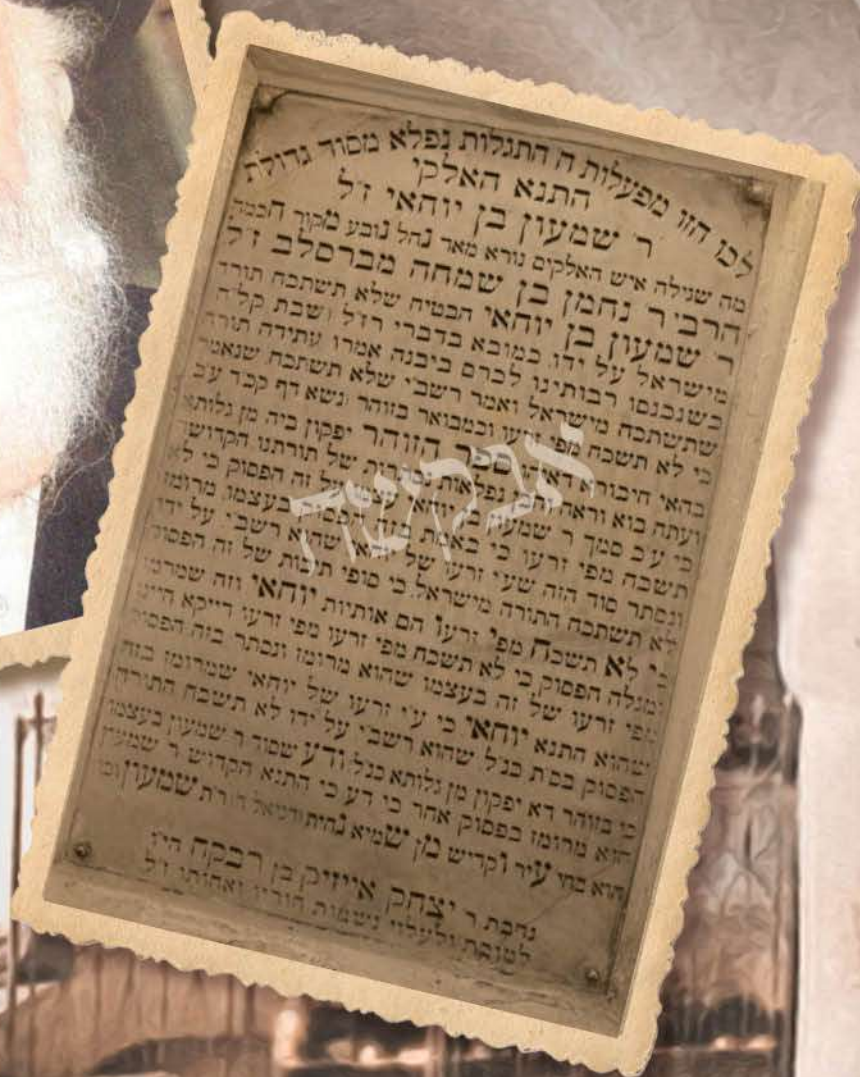 לכו חזו מפעלות ה התגלות נפלא מסוד גדולת
התנא האלקי
ר שמעון בן יוחאי ז"ל
מה שגילה איש האלקים נורא מאד נחל נובע מקור חכמה
הרב ר נחמן בן שמחה מברסלב ז"ל
ר שמעון בן יוחאי הבטיח שלא תשתכח תורה
מישראל על ידו. כמובא בדברי רז"ל (שבת קל"ח
כשנכנסו רבותינו לכרם ביבנה אמרו עתידה תורה
שתשתכח מישראל ואמר רשב"י שלא תשתכח שנאמר
כי לא תשכח מפי זרעו וכמבואר בזוהר (נשא דף קכ"ד ע"ב
בהאי חיבורא דאיהו ספר הזוהר יפקון ביה מן גלותא
ועתה בוא וראה והבן נפלאות נסתרות של תורתנו הקדושה
כי ע"כ סמך ר שמעון בן יוחאי עצמו של זה הפסוק כי לא
תשכח מפי זרעו כי באמת בזה הפסוק בעצמו מרומז
ונסתר סוד הזה שע"י זרעו של יוחאי שהוא רשב"י על ידו
לא תשתכח התורה מישראל כי סופי תיבות של זה הפסוק
כי לא תשכח מפי זרעו הם אותיות יוחאי וזה שמרמז
ומגלה הפסוק כי לא תשכח מפי זרעו מפי זרעו דייקא היינו
מפי זרעו של זה בעצמו שהוא מרומז ונסתר בזה הפסוק
שהוא התנא יוחאי כי ע"י זרעו של יוחאי שמרומז בזה
הפסוק בס"ת כנ"ל שהוא רשב"י על ידו לא תשכח התורה
כי בזוהר דא יפקון מן גלותא כנ"ל ודע שסוד ר שמעון בעצמו
הוא מרומז בפסוק אחר כי דע כי התנא הקדוש ר שמעון
הוא בחי עיר וקדיש מן שמיא נחית (דניאל ד) ר"ת שמעון וכו
נדבת ר יצחק אייזיק בן רבקה הי"ו
לטובת ולעלוי נשמות הוריו ואחותו ז"ל
אבקשה